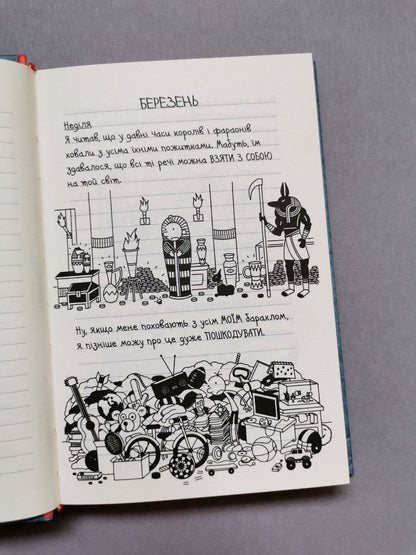 БЕРЕЗЕНЬ
Неділя
Я читав, що у давні часи королів і фараонів
ховали з усіма їхніми пожитками. Мабуть, їм
здавалося, що всі ті речі можна ВЗЯТИ З СОБОЮ
на той світ.
Ну, якщо мене поховають з усім МОЇМ барахлом,
я пізніше можу про це дуже ПОШКОДУВАТИ.